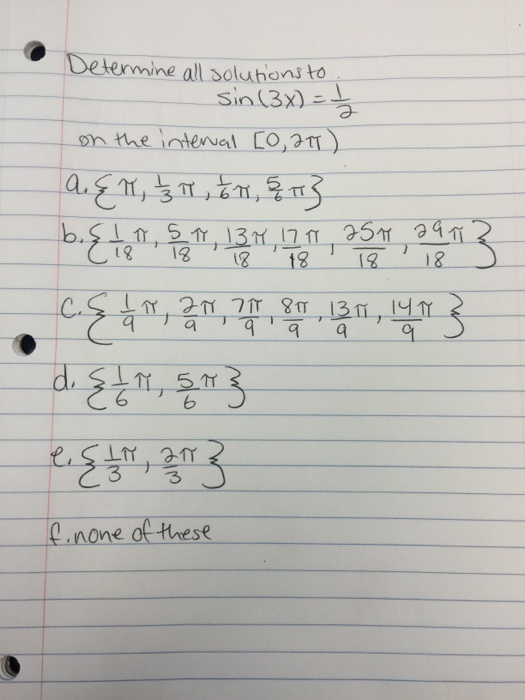 Determine all solutions to
sin(3x) = 1/2
on the interval [0, 2π)
a. {π, 1/3 π, 1/6 π, 5/6 π}
b. {1/18 π, 5π/18, 13π/18, 17π/18, 25π/18, 29π/18}
c. {1/9 π, 2π/9, 7π/9, 8π/9, 13π/9, 14π/9}
d. {1/6 π, 5π/6}
e. {1π/3, 2π/3}
f. none of these